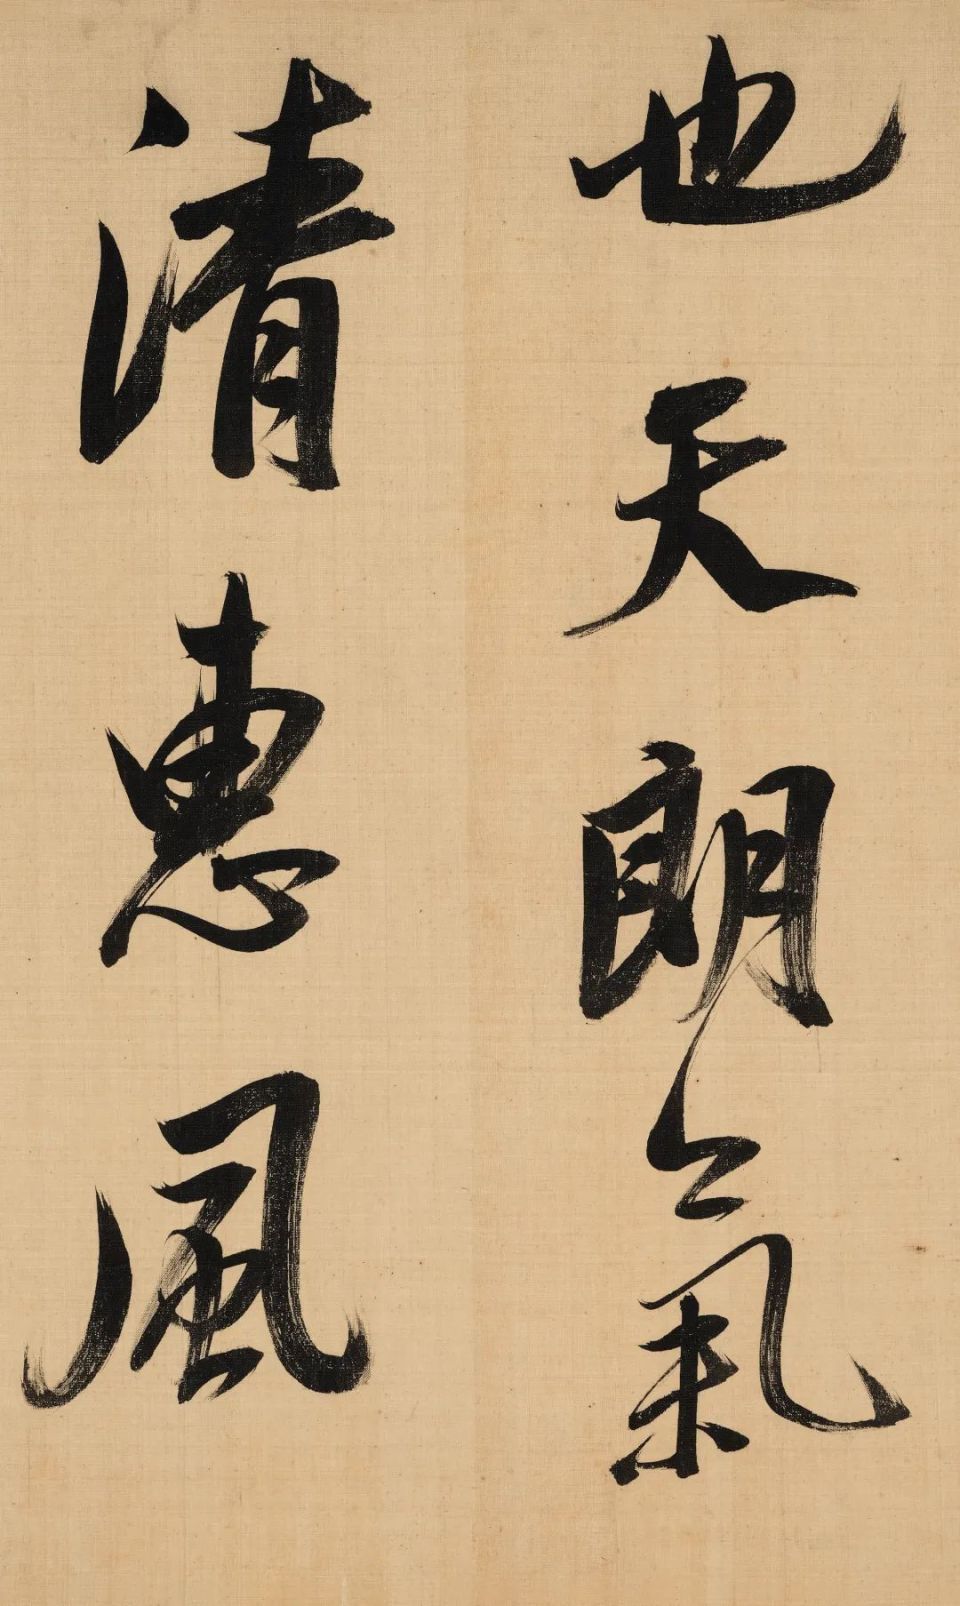 也天朗氣
清惠風